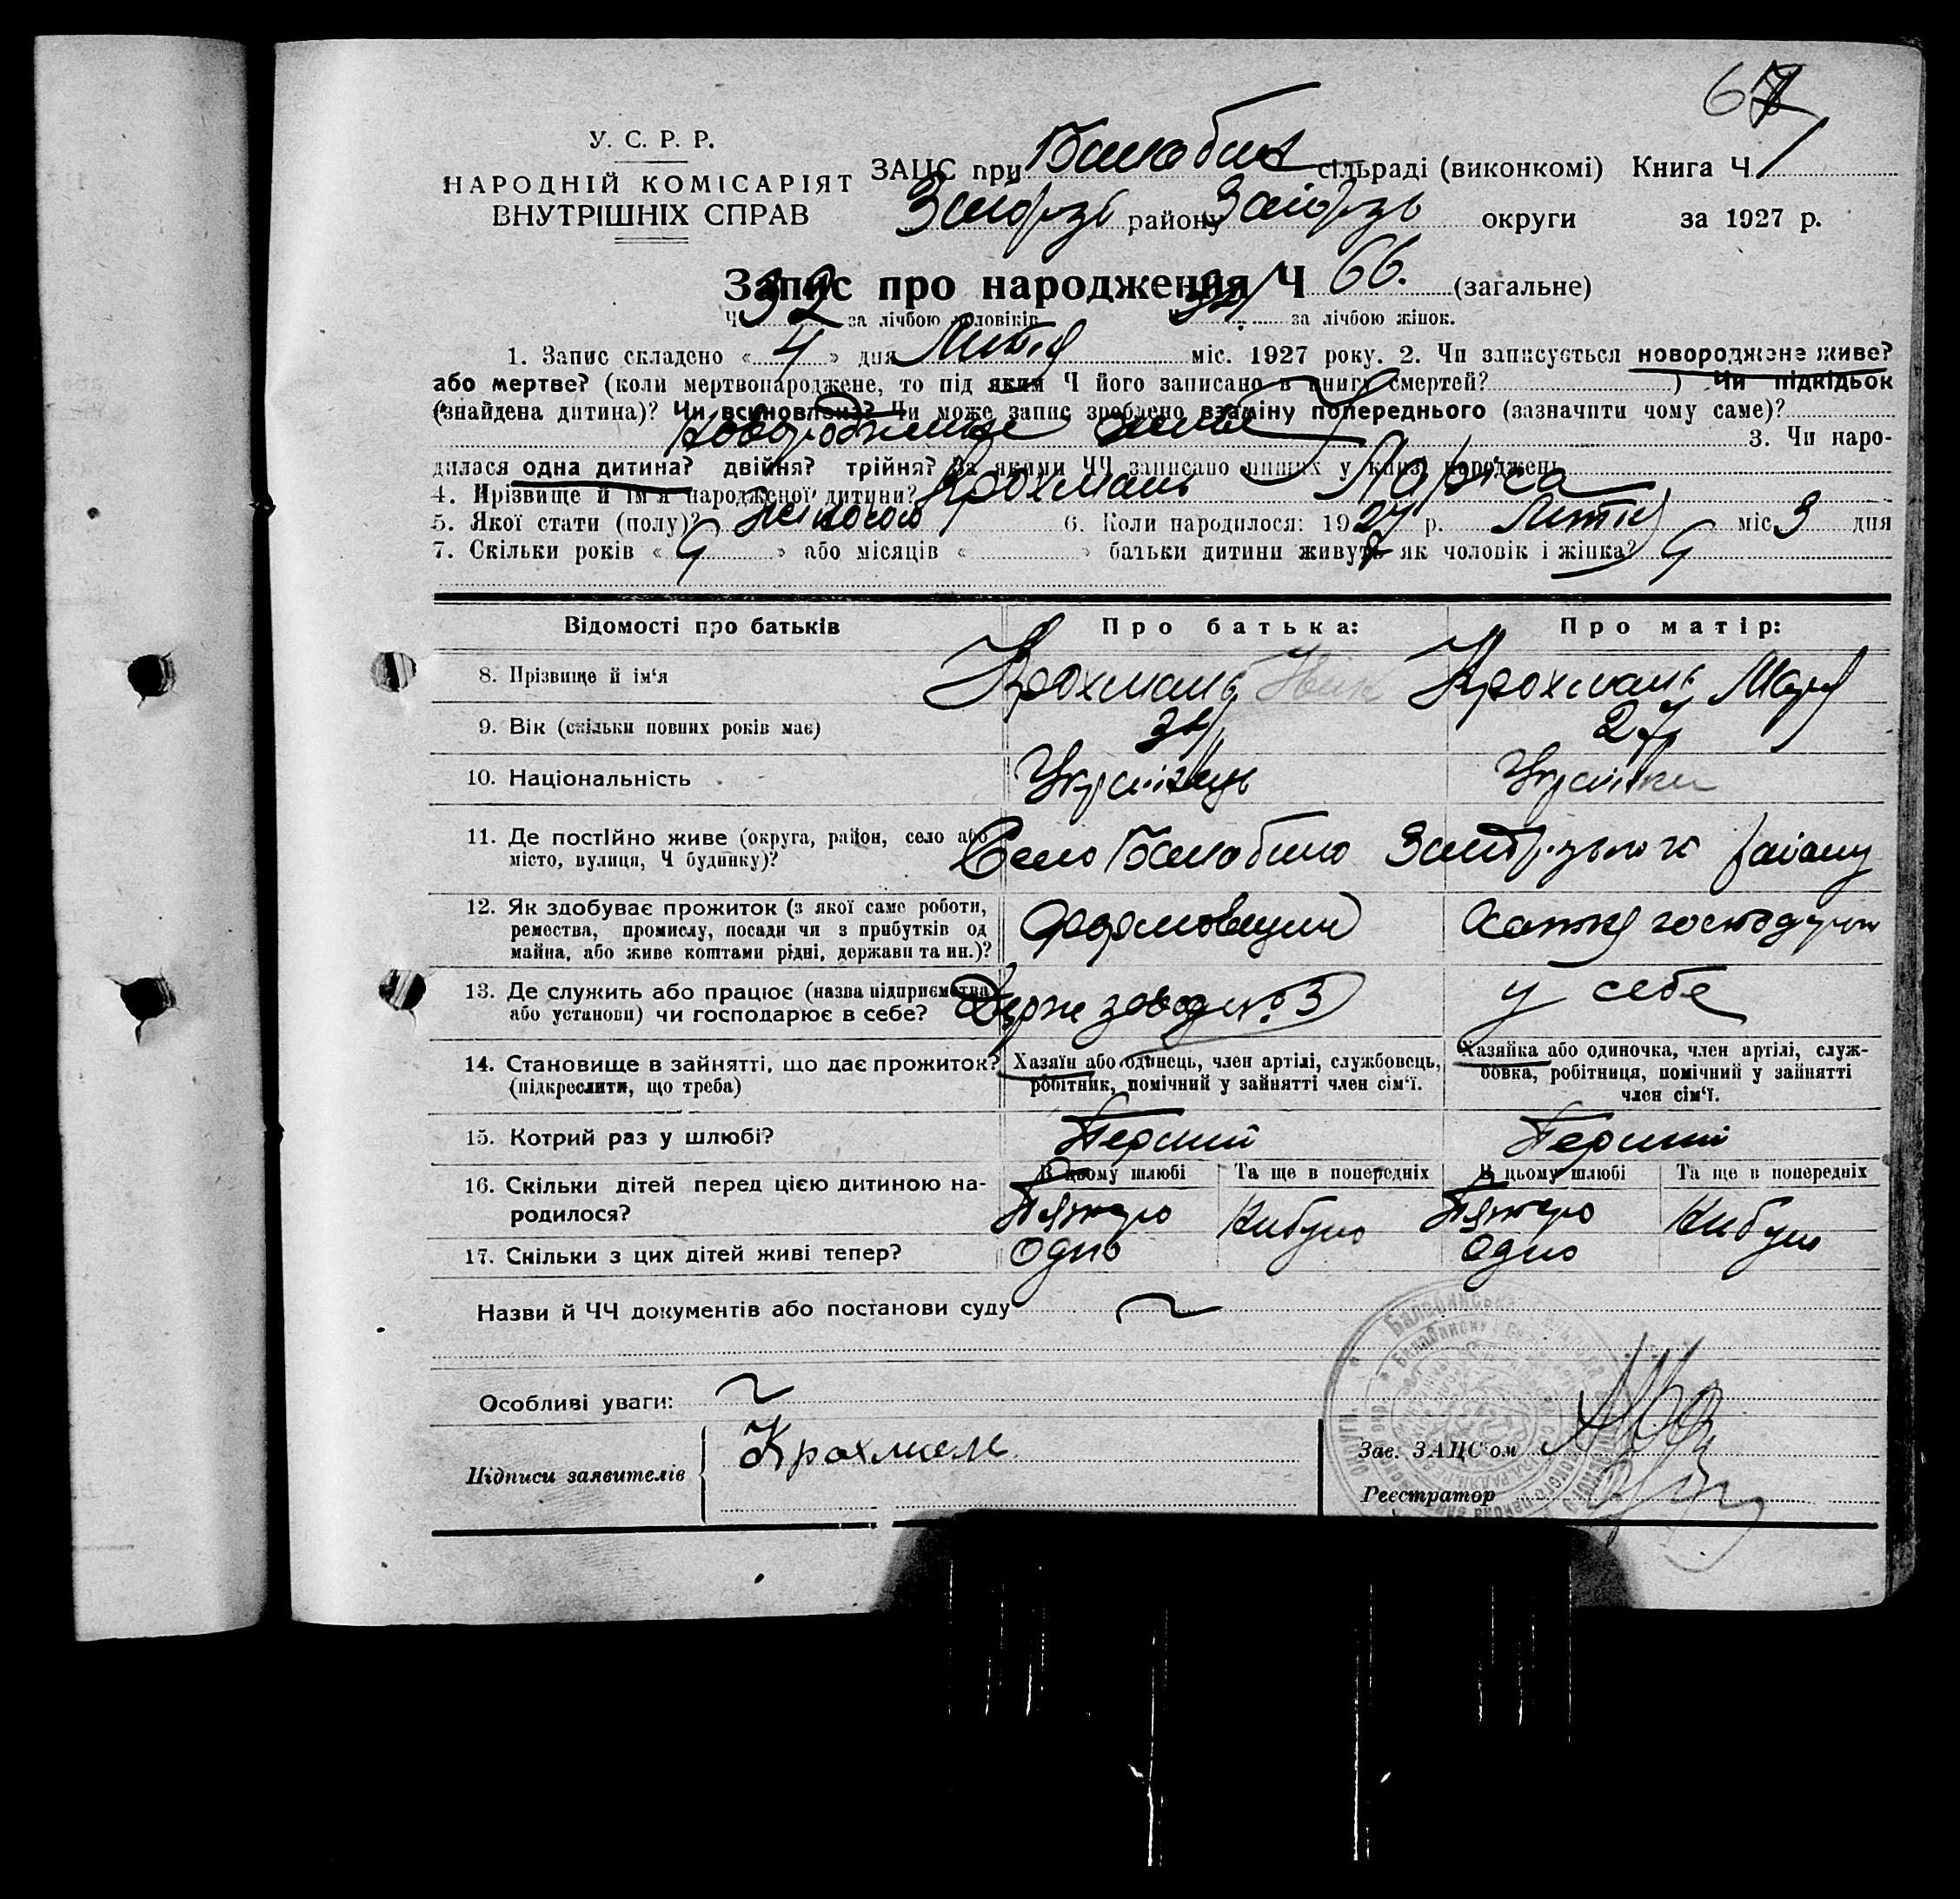 67
У. С. Р. Р.
НАРОДНІЙ КОМІСАРІЯТ
ВНУТРІШНІХ СПРАВ
ЗАЦС при Балабин сільраді (виконкомі) Книга Ч 1
Запорізь району Запорізь округи за 1927 р.
Запис про народження Ч 66. (загальне)
Ч 32 за лічбою чоловіків Ч 34 за лічбою жінок.
1. Запис складено « 4 » дня Лютня міс. 1927 року. 2. Чи записується новороджене живе?
або мертве? (коли мертвонароджене, то під яким Ч його записано в книгу смертей? ) Чи підкідьок
(знайдена дитина)? Чи всиновлени? Чи може запис зроблено взаміну попереднього (зазначити чому саме)?
Новороджене живе 3. Чи наро-
дилася одна дитина? двійня? трійня? За якими ЧЧ записано инших у книзі народжень
4. Прізвище й ім'я народженої дитини? Крохмаль Лариса
5. Якої стати (полу)? Жіночого 6. Коли народилося: 1927 р. Лютня міс. 3 дня
7. Скільки років « 9 » або місяців « » батьки дитини живуть як чоловік і жінка? 9
Відомості про батьків Про батька: Про матір:
8. Прізвище й ім'я Крохмаль Крохмаль Марія
9. Вік (скільки повних років має) 34 27
10. Національність Українець Українка
11. Де постійно живе (округа, район, село або
місто, вулиця, Ч будинку)? Село Балабино району
12. Як здобуває прожиток (з якої саме роботи,
ремества, промислу, посади чи з прибутків од
майна, або живе коштами рідні, держави та ин.)? Формовщик Хатня
13. Де служить або працює (назва підприємства
або установи) чи господарює в себе? Держ завод № 3 у себе
14. Становище в зайнятті, що дає прожиток?
(підкреслити, що треба)
Хазяїн або одинець, член артілі, службовець,
робітник, помічний у зайнятті член сім'ї.
Хазяйка або одиночка, член артілі, служ-
бовка, робітниця, помічний у зайнятті
член сім'ї.
15. Котрий раз у шлюбі? Перший Перший
В цьому шлюбі Та ще в попередніх В цьому шлюбі Та ще в попередніх
16. Скільки дітей перед цією дитиною на-
родилося? Пятеро Небуло Пятеро Небуло
17. Скільки з цих дітей живі тепер? Одно Одно
Назви й ЧЧ документів або постанови суду
Особливі уваги:
Підписи заявителів Крохмаль
Зав. ЗАЦС'ом
Реєстратор